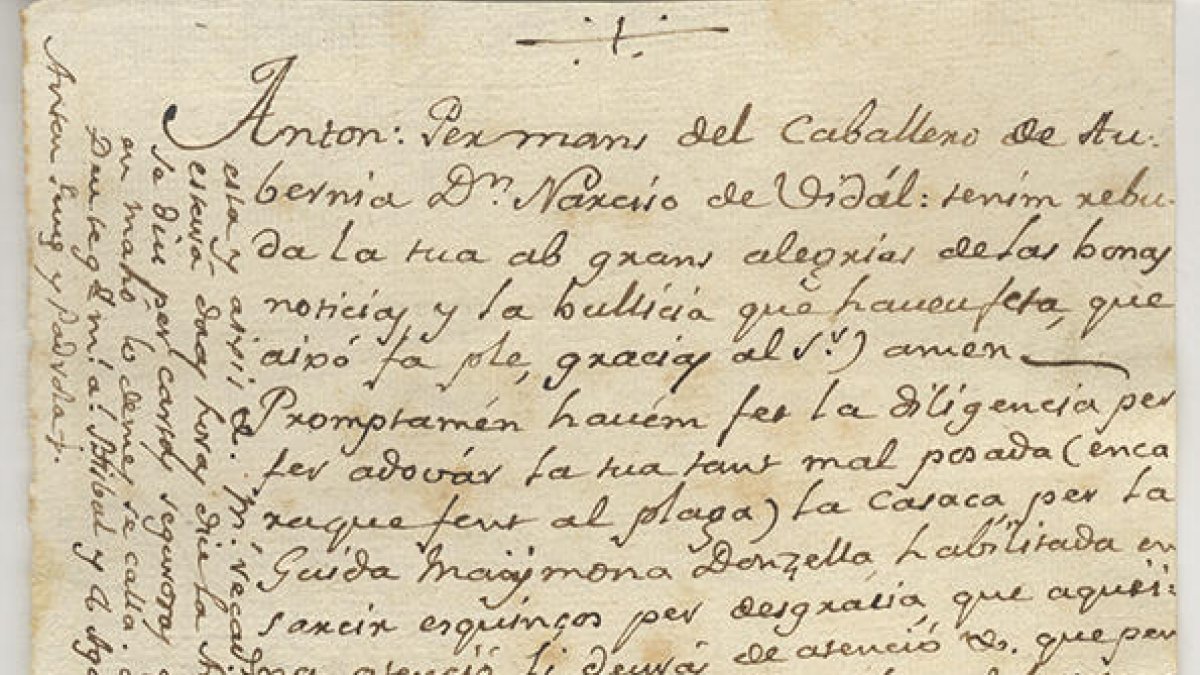 Anton: Per mans del Caballero de Au-
bernia Dn. Narciso de Vidál: tenim rebu-
da la tua ab grans alegrias de las bonas
noticias y la bullicia que haveu feta, que
aixó fa ple, gracias al Sr.) amen
Promptamén havém fet la diligencia per
fer adovár la tua tant mal posada (enca
raque fent al plaza) la Casaca per la
Guida Maijmona Donzella habilitada en
sarcir esquinços per desgrásia, que aquesi:
na atenció li deurás de atenció &. que per
esta y axsi &. Mi, recad
estará dos horas die la
se diu per cartas seguras
en mahó lo demes se calla.
Deu teg
Anton Puig y Padrolat.